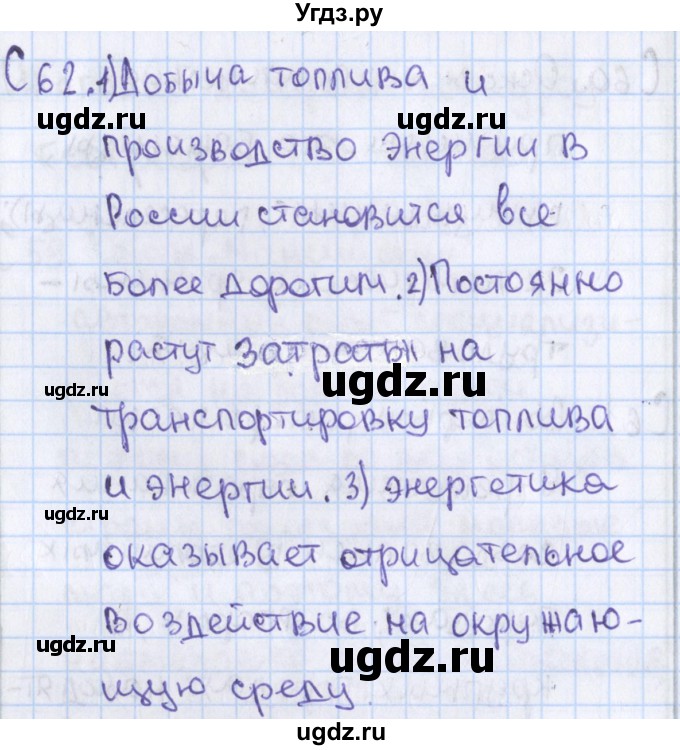 Угдз.ру
С 62. 1) Добыча топлива и
ugdz.ru ugdz.ru
производство энергии в
России становится все
более дорогим. 2) Постоянно
растут затраты на
ugdz.ru ugdz.ru
транспортировку топлива
и энергии. 3) энергетика
ugdz.ru ugdz.ru
оказывает отрицательное
воздействие на окружаю-
ugdz.ru ugdz.ru
щую среду.
ugdz.ru ugdz.ru